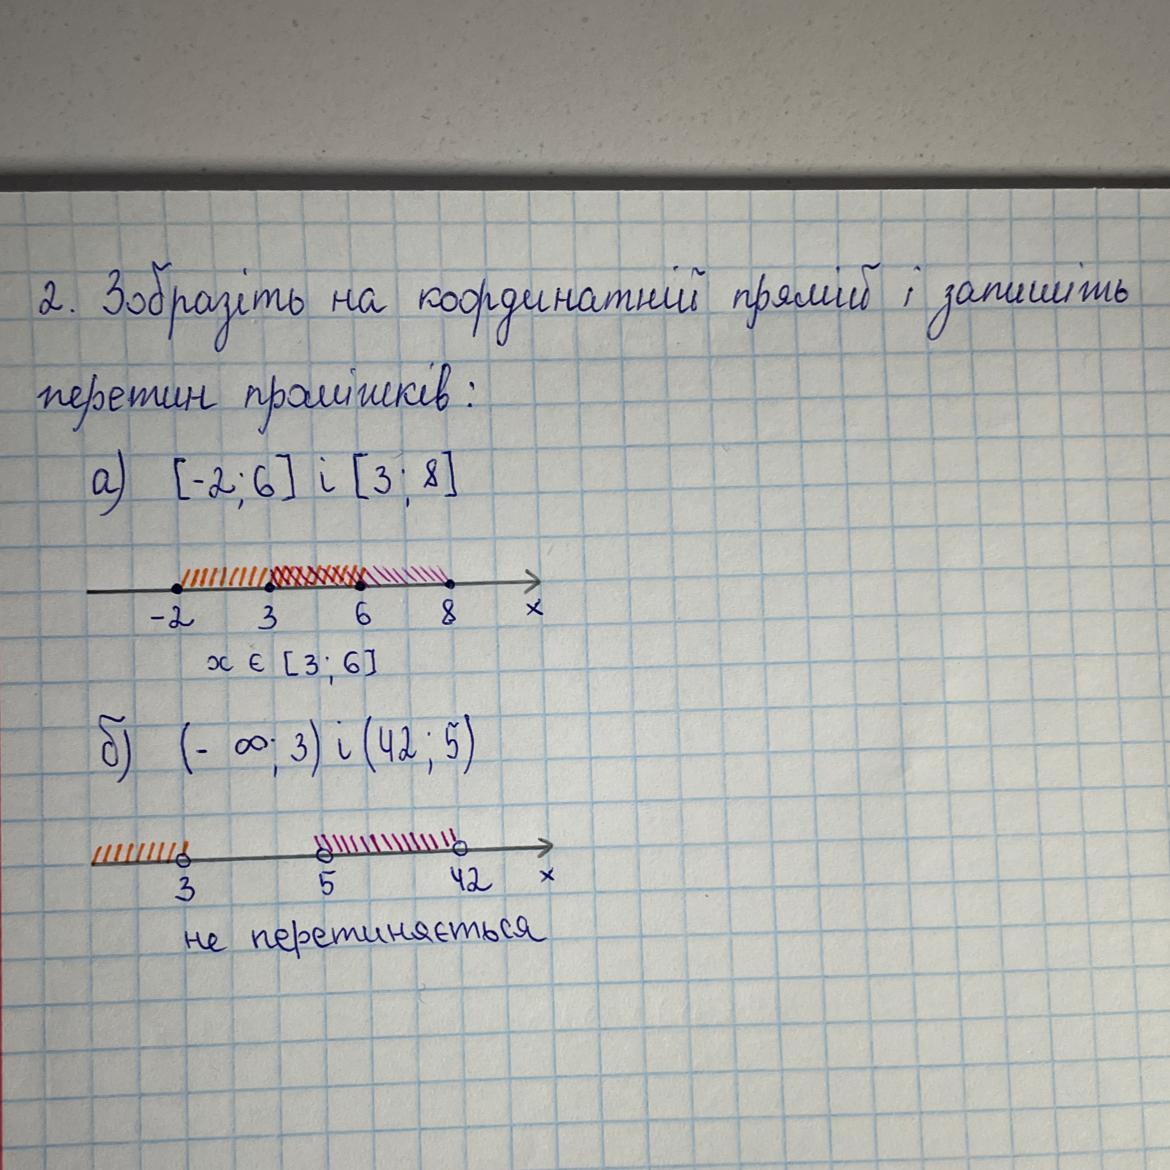 2. Зобразіть на координатній прямій і запишіть
перетин проміжків:
а) [-2; 6] і [3; 8]
-2 3 6 8 x
x ∈ [3; 6]
б) (- ∞; 3) і (42; 5)
3 5 42 x
не перетинається